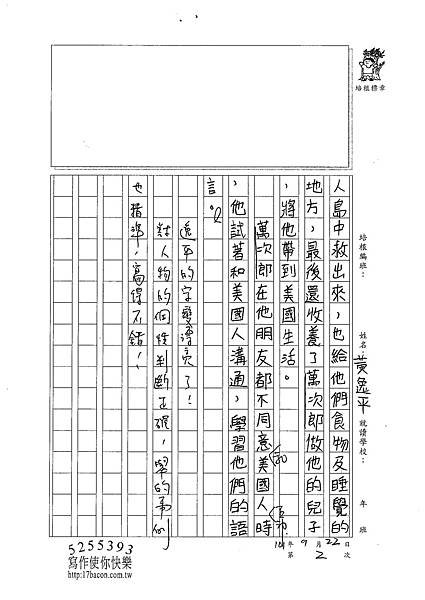 培根標章
培根編班：
姓名：黃逸平
就讀學校：
年 班
101年9月22日
第2次
人島中救出來，也給他們食物及睡覺的
地方，最後還收養了萬次郎做他的兒子
，將他帶到美國生活。
萬次郎在他朋友都不同意美國人時
和
，他試著和美國人溝通，學習他們的語
言。
逸平的字變漂亮了！
對人物的個性判斷正確，舉的事例
也精準，寫得不錯！
5255393
寫作使你快樂
http://17bacon.com.tw